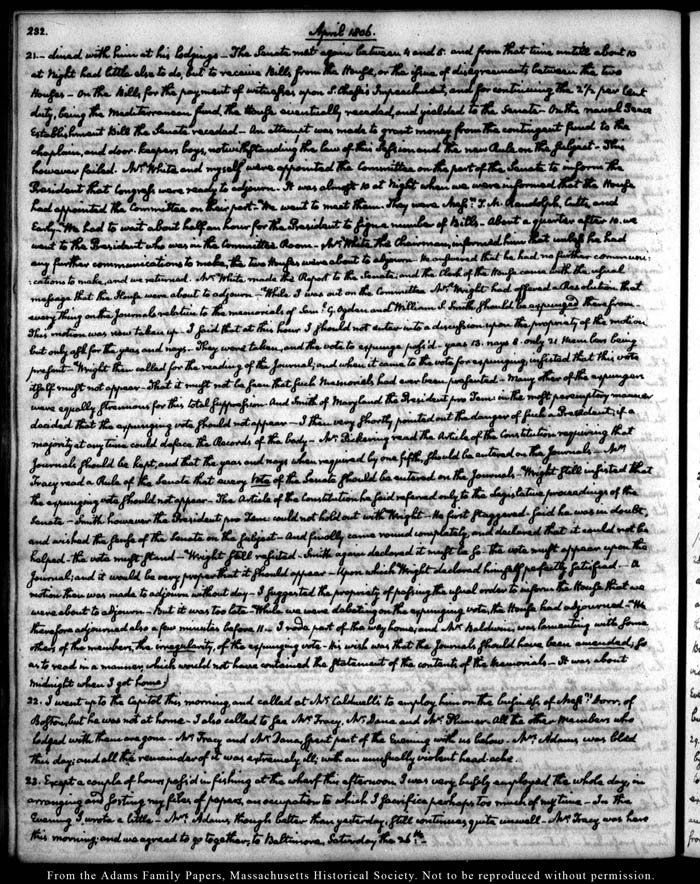 232. April 1806.
21.— dined with him at his lodgings— The Senate met again between 4 and 5. and from that time untill about 10
at Night had little else to do, but to receive Bills from the House, or the issue of disagreements between the two
Houses— On the Bill, for the payment of witnesses upon S. Chase's Impeachment, and for continuing the 2½ per Cent
duty, being the Mediterranean fund, the House eventually receded, and yielded to the Senate— On the naval Peace
Establishment Bill the Senate receded— An attempt was made to grant money from the contingent fund to the
chaplain, and door-keepers boys, notwithstanding the law of this Session and the new Rule on the subject— This
however failed. Mr. White and myself were appointed the Committee on the part of the Senate to inform the
President that Congress were ready to adjourn. It was almost 10 at Night when we were informed that the House
had appointed the Committee on their part— We went to meet them— They were Messrs. T. M. Randolph, Cutts, and
Early— We had to wait about half an hour for the President to sign a number of Bills— About a quarter after 10. we
went to the President who was in the Committee Room— Mr. White the Chairman, informed him that unless he had
any further communications to make, the two Houses were about to adjourn. He answered that he had no further commun:
:cations to make, and we returned. Mr. White made the Report to the Senate, and the Clerk of the House came with the usual
message that the House were about to adjourn— While I was out on the Committee Mr. Wright had offered a Resolution that
every thing on the Journals relative to the memorials of Saml. G. Ogden and William S. Smith should be expunged therefrom—
This motion was now taken up. I said that at this hour I should not enter into a discussion upon the propriety of the motion
but only ask for the yeas and nays— They were taken, and the vote to expunge pass'd— yeas 13. nays 8. only 21 Members being
present— Wright then called for the reading of the Journal; and when it came to the vote for expunging, insisted that this vote
itself must not appear— That it must not be seen that such Memorials had ever been presented— Many other of the expungers
were equally strenuous for this total suppression. And Smith of Maryland the President pro Tem: in the most peremptory manner
decided that the expunging vote should not appear— I then very shortly pointed out the danger of such a Precedent; if a
majority at any time could deface the Records of the body— Mr. Pickering read the Article of the Constitution requiring that
Journals should be kept, and that the yeas and nays when required by one fifth, should be entered on the Journals— Mr.
Tracy read a Rule of the Senate that every Vote of the Senate should be entered on the Journals— Wright still insisted that
the expunging vote should not appear— The Article of the Constitution he said referred only to the Legislative proceedings of the
Senate— Smith however the President pro Tem: could not hold out with Wright— He first staggered— said he was in doubt,
and wished the sense of the Senate on the subject— And finally came round completely, and declared that it could not be
helped— the vote must stand— Wright still resisted— Smith again declared it must be so— the vote must appear upon the
Journal; and it would be very proper that it should appear— Upon which Wright declared himself perfectly satisfied.— A
motion then was made to adjourn without day— I suggested the propriety of passing the usual order to inform the House that we
were about to adjourn— But it was too late— While we were debating on the expunging vote, the House had adjourned— We
therefore adjourned also a few minutes before 11.— I rode part of the way home, and Mr. Baldwin, was lamenting with some
others of the members, the irregularity, of the expunging vote— His wish was that the Journals should have been amended, so
as to read in a manner, which would not have contained the statement of the contents of the Memorials— It was about
midnight when I got home.
22. I went up to the Capitol this morning, and called at Mr. Caldwell's to employ him on the business of Messrs. Dorr, of
Boston, but he was not at home— I also called to see Mr. Tracy, Mr. Dana and Mr. Plumer— All the other Members who
lodged with them are gone— Mr. Tracy and Mr. Dana, spent part of the Evening with us below. Mrs. Adams was bled
this day, and all the remainder of it was extremely ill, with an unusually violent head-ache.
23. Except a couple of hours pass'd in fishing at the wharf this afternoon I was very busily employed the whole day, in
arranging and sorting my files of papers, an occupation to which I sacrifice perhaps too much of my time— In the
Evening I wrote a little— Mrs. Adams, though better than yesterday, still continues quite unwell— Mr. Tracy was here
this morning, and we agreed to go together, to Baltimore, Saturday the 26th.—
From the Adams Family Papers, Massachusetts Historical Society. Not to be reproduced without permission.